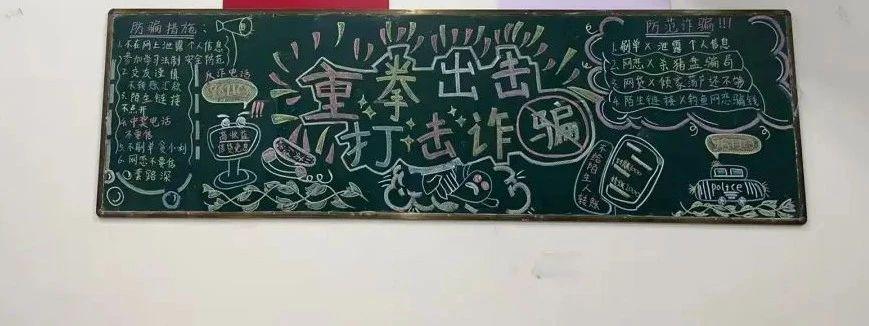 防骗措施:
1.不在网上泄露个人信息
参加学习法制安全防范
2.交友谨慎
不转账汇款
3.陌生链接
不点开
4.中奖电话
不要信
5.不刷单贪小利
6.网恋不要信
套路深
反诈电话
96110
高收益
重拳出击
打击诈骗
不给陌生人
转账
防范诈骗!!!
1.刷单×泄露个人信息
2.网恋×杀猪盘骗局
3.网贷×倾家荡产还不够
4.陌生链接×钓鱼网恋骗钱
96110
police